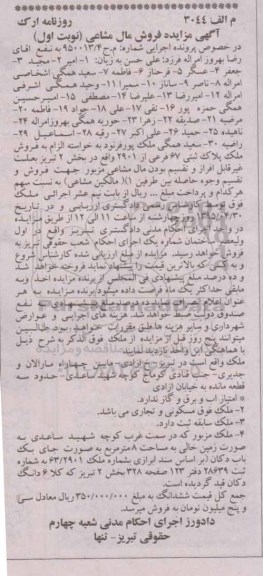 م الف ۳۰۴۴ روزنامه ارک
آگهی مزایده فروش مال مشاعی (نوبت اول)
در خصوص پرونده اجرایی شماره: م ج ۹۵۰۰۱۳/۴ به نفع اقای
رضا بهروز امراله فرزند: علی حسن به زیان: ۱- امیر ۲- مجید ۳-
جعفر ۴- عسگر ۵- فرحناز ۶- فاطمه ۷- سعید همگی اشخاصی
امراله ۸- ناصر ۹- ساناز ۱۰- سمیرا ۱۱- وحید همگی اشرفی
امراله ۱۲- امیررضا ۱۳- علیرضا ۱۴- مصطفی ۱۵- امیرحسین
همگی حمزه پور ۱۶- تقی ۱۷- علی ۱۸- جواد ۱۹- فاطمه ۲۰-
مرضیه ۲۱- صدیقه ۲۲- زهرا ۲۳- حوریه همگی بهروزامراله ۲۴-
ناهیده ۲۵- حمید ۲۶- علی اکبر ۲۷- رقیه ۲۸- اسماعیل ۲۹-
راضیه ۳۰- سعید همگی ملک پورفرنود به خواسته الزام به فروش
ملک پلاک ثبتی ۶۷ فرعی از ۲۹۰۱ واقع در بخش ۲ تبریز بعلت
غیرقابل افراز و تقسیم بودن مال مشاعی مزبور جهت فروش و
تقسیم وجوه حاصله بین طرفین (مالکین مشاعی) به نسبت سهم
هرکدام و پرداخت مبلغ ریال از بابت نیم عشر اجرائی ملک
فوق توسط کارشناس رسمی دادگستری ارزیابی و در تاریخ
۱۳۹۵/۰۴/۳۰ روز چهارشنبه از ساعت ۱۱ الی ۱۲ از طریق مزایده
در واحد اجرای احکام مدنی دادگستری تبریز واقع در اول
ولیعصر ساختمان شماره یک اجرای احکام شعب حقوقی تبریز به
فروش خواهد رسید. مزایده از مبلغ ارزیابی شده کارشناس شروع
و به کسی که بالاترین قیمت را پیشنهاد نماید فروخته خواهد شد
و ده درصد مبلغ پیشنهادی فی المجلس از برنده مزایده اخذ و به
مابقی حداکثر یک ماه فرصت داده میشود برنده مزایده به هر
عنوان اعلام انصراف نماید ده درصد مبلغ پیشنهادی به نفع
صندوق دولت ضبط خواهد شد. هزینه های اجرایی و عوارض
شهرداری و سایر هزینه ها طبق مقررات خواهد بود. طالبین
میتوانند پنج روز قبل از مزایده از ملک فوق الذکر به شرح ذیل
با هماهنگی این واحد بازدید نمایند.
ملک واقع است در تبریز- آزادی- مابین چهارراه مارالان و
جدیری- جنب قنادی گوماج کوچه شهید ساعدی- حدود سه
قطعه مانده به خیابان آزادی
* امتیاز آب و برق و گاز ندارد.
۲- ملک فوق مسکونی و تجاری می باشد.
۳- ملک سابقه ثبت دارد.
۴- ملک مزبور که در سمت غرب کوچه شهید ساعدی به
صورت زمین خالی به مساحت ۸ مترمربع به صورت جای یک
باب دکان (بر اساس سند ابرازی بشماره ملک ۶۳/۲۹۰۱ به شماره
ثبت ۲۸۶۳۹ دفتر ۱۲۳ صفحه ۳۲۸ بخش ۲ تبریز که کلا ۶ دانگ
دکان قید گردیده است.
جمع کل قیمت ششدانگ به مبلغ ۳۵۰/۰۰۰/۰۰۰ ریال معادل سی
و پنج میلیون تومان به فروش میرسد.
دادورز اجرای احکام مدنی شعبه چهارم
حقوقی تبریز- تنها